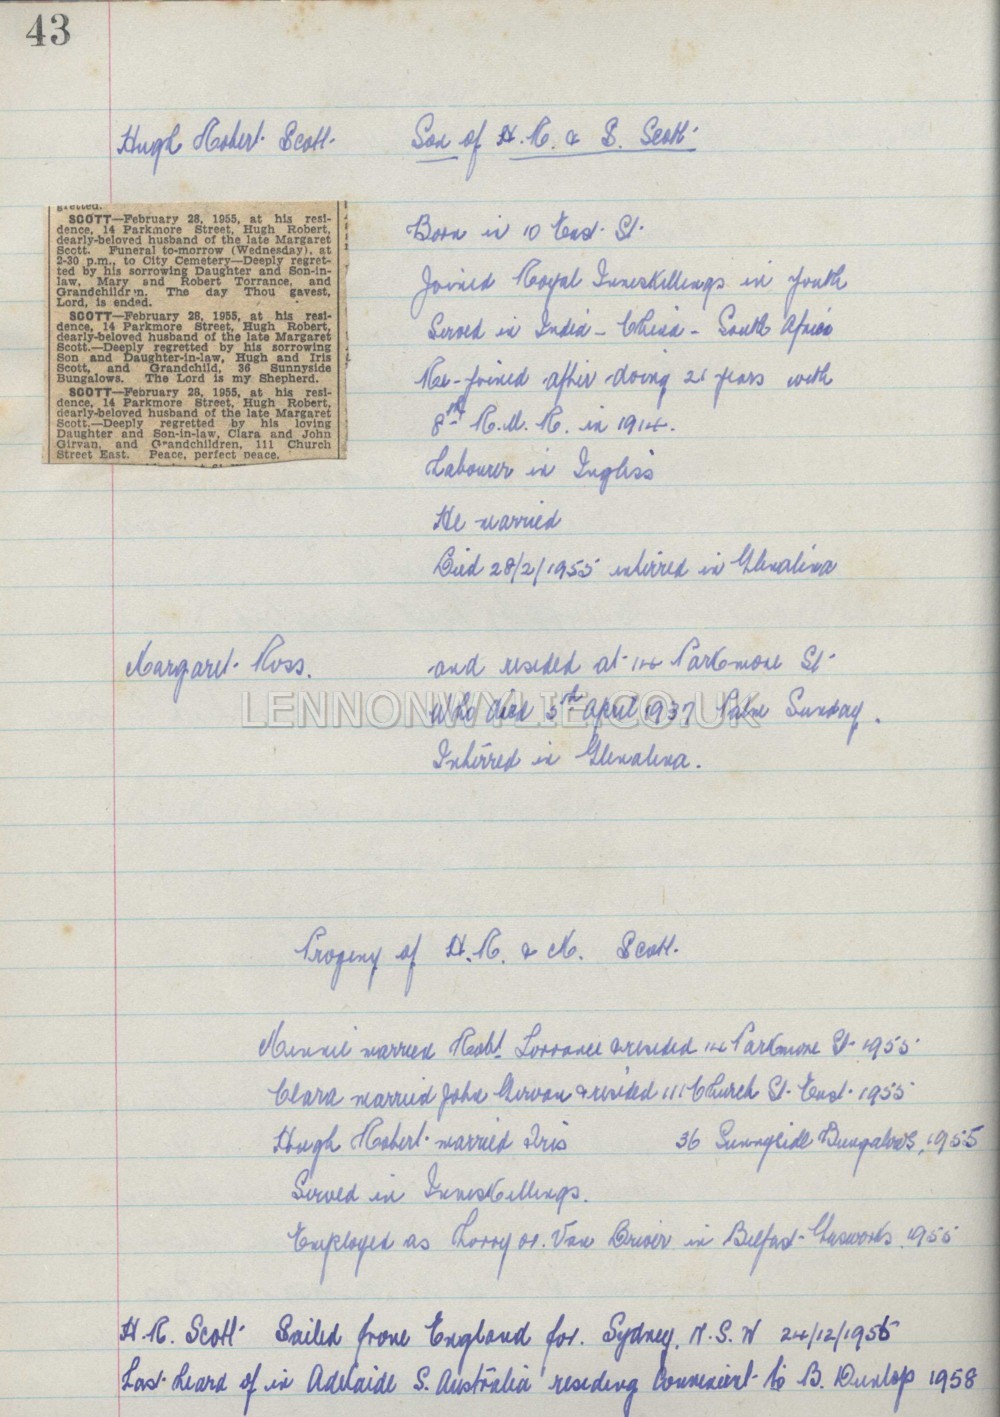 43
Hugh Robert Scott. Son of H. R. & S. Scott.
gretted.
SCOTT—February 28, 1955, at his resi-
dence, 14 Parkmore Street, Hugh Robert,
dearly-beloved husband of the late Margaret
Scott. Funeral to-morrow (Wednesday), at
2-30 p.m., to City Cemetery—Deeply regret-
ted by his sorrowing Daughter and Son-in-
law, Mary and Robert Torrance, and
Grandchildren. The day Thou gavest,
Lord, is ended.
SCOTT—February 28, 1955, at his resi-
dence, 14 Parkmore Street, Hugh Robert,
dearly-beloved husband of the late Margaret
Scott.—Deeply regretted by his sorrowing
Son and Daughter-in-law, Hugh and Iris
Scott, and Grandchild, 36 Sunnyside
Bungalows. The Lord is my Shepherd.
SCOTT—February 28, 1955, at his resi-
dence, 14 Parkmore Street, Hugh Robert,
dearly-beloved husband of the late Margaret
Scott.—Deeply regretted by his loving
Daughter and Son-in-law, Clara and John
Girvan, and Grandchildren, 111 Church
Street East. Peace, perfect peace.
Born in 10 East St.
Joined Royal Inneskillings in youth
Served in India - China - South Africa
Re-joined after doing 21 years with
8th R.U.R. in 1914.
Labourer in Inglis's
He married
Died 28/2/1955 interred in Glenalina
Margaret Ross. and resided at 14 Parkmore St.
Who died 5th April 1937 Palm Sunday.
Interred in Glenalina.
LENNONWYLIE.CO.UK
Progeny of H. R. & M. Scott.
Minnie married Robt. Torrance & resided 14 Parkmore St. 1955
Clara married John Girvan & resided 111 Church St. East. 1955
Hugh Robert married Iris 36 Sunnyside Bungalows, 1955
Served in Inneskillings.
Employed as Lorry or Van Driver in Belfast Gasworks. 1955
H. R. Scott Sailed from England for. Sydney, N. S. W 24/12/1955
Last heard of in Adelaide S. Australia residing convenient to B. Dunlop 1958